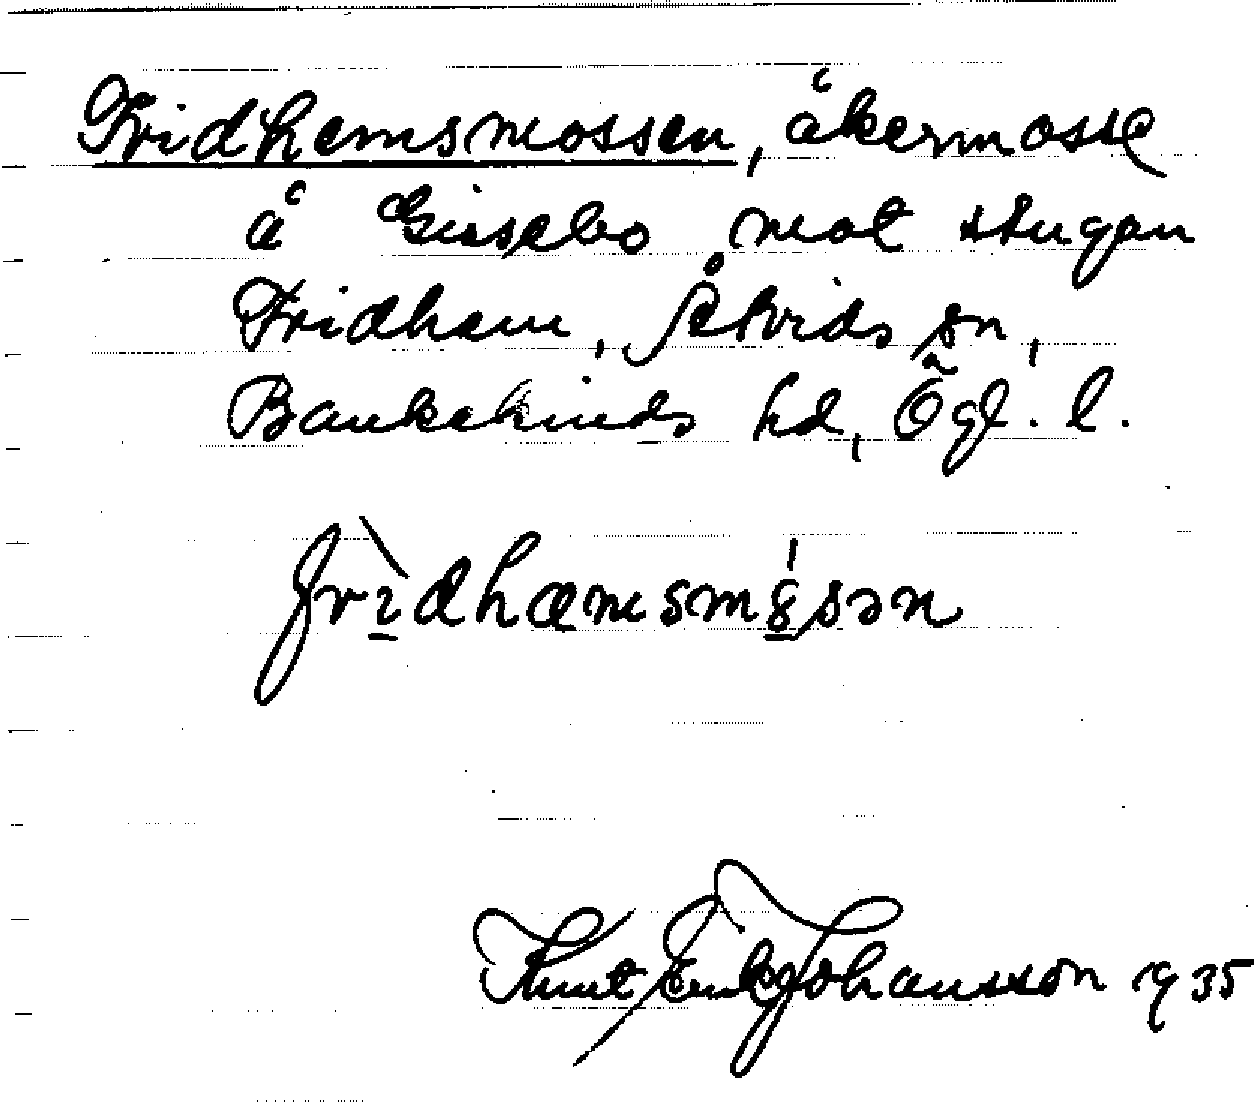 Fridhemsmossen, åkermosse
å Gissebo mot stugan
Fridhem, Åtvids sn,
Bankekinds hd, Ögl. l.
frìdhæmsmósən
Knut Erik Johansson 1935